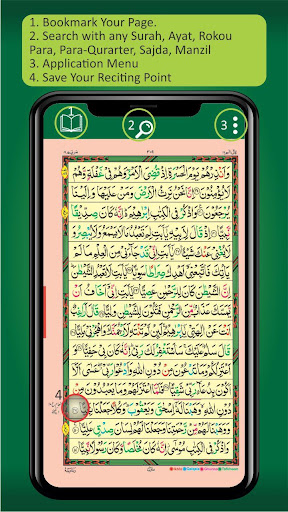 1. Bookmark Your Page.
2. Search with any Surah, Ayat, Rokou
Para, Para-Qurarter, Sajda, Manzil
3. Application Menu
4. Save Your Reciting Point
1
2
3
٣١٤
وَاَنْذِرْهُمْ يَوْمَ الْحَسْرَةِ اِذْ قُضِيَ الْاَمْرُ وَهُمْ فِيْ غَفْلَةٍ وَّهُمْ
لَا يُؤْمِنُوْنَ اِنَّا نَحْنُ نَرِثُ الْاَرْضَ وَمَنْ عَلَيْهَا وَاِلَيْنَا
يُرْجَعُوْنَ وَاذْكُرْ فِي الْكِتٰبِ اِبْرٰهِيْمَ اِنَّهٗ كَانَ صِدِّيْقًا
نَّبِيًّا اِذْ قَالَ لِاَبِيْهِ يٰۤاَبَتِ لِمَ تَعْبُدُ مَا لَا يَسْمَعُ وَلَا يُبْصِرُ وَلَا
يُغْنِيْ عَنْكَ شَيْئًا يٰۤاَبَتِ اِنِّيْ قَدْ جَآءَنِيْ مِنَ الْعِلْمِ مَا لَمْ
يَاْتِكَ فَاتَّبِعْنِيْۤ اَهْدِكَ صِرَاطًا سَوِيًّا يٰۤاَبَتِ لَا تَعْبُدِ الشَّيْطٰنَ
اِنَّ الشَّيْطٰنَ كَانَ لِلرَّحْمٰنِ عَصِيًّا يٰۤاَبَتِ اِنِّيْۤ اَخَافُ اَنْ
يَّمَسَّكَ عَذَابٌ مِّنَ الرَّحْمٰنِ فَتَكُوْنَ لِلشَّيْطٰنِ وَلِيًّا قَالَ اَرَاغِبٌ
اَنْتَ عَنْ اٰلِهَتِيْ يٰۤاِبْرٰهِيْمُ لَئِنْ لَّمْ تَنْتَهِ لَاَرْجُمَنَّكَ وَاهْجُرْنِيْ مَلِيًّا
قَالَ سَلٰمٌ عَلَيْكَ سَاَسْتَغْفِرُ لَكَ رَبِّيْ اِنَّهٗ كَانَ بِيْ حَفِيًّا
وَاَعْتَزِلُكُمْ وَمَا تَدْعُوْنَ مِنْ دُوْنِ اللّٰهِ وَاَدْعُوْا رَبِّيْ عَسٰۤى اَلَّاۤ
اَكُوْنَ بِدُعَآءِ رَبِّيْ شَقِيًّا فَلَمَّا اعْتَزَلَهُمْ وَمَا يَعْبُدُوْنَ مِنْ
4
دُوْنِ اللّٰهِ وَهَبْنَا لَهٗۤ اِسْحٰقَ وَيَعْقُوْبَ وَكُلًّا جَعَلْنَا نَبِيًّا
وَوَهَبْنَا لَهُمْ مِّنْ رَّحْمَتِنَا وَجَعَلْنَا لَهُمْ لِسَانَ صِدْقٍ عَلِيًّا
وَاذْكُرْ فِي الْكِتٰبِ مُوْسٰۤى اِنَّهٗ كَانَ مُخْلَصًا وَّكَانَ رَسُوْلًا نَّبِيًّا